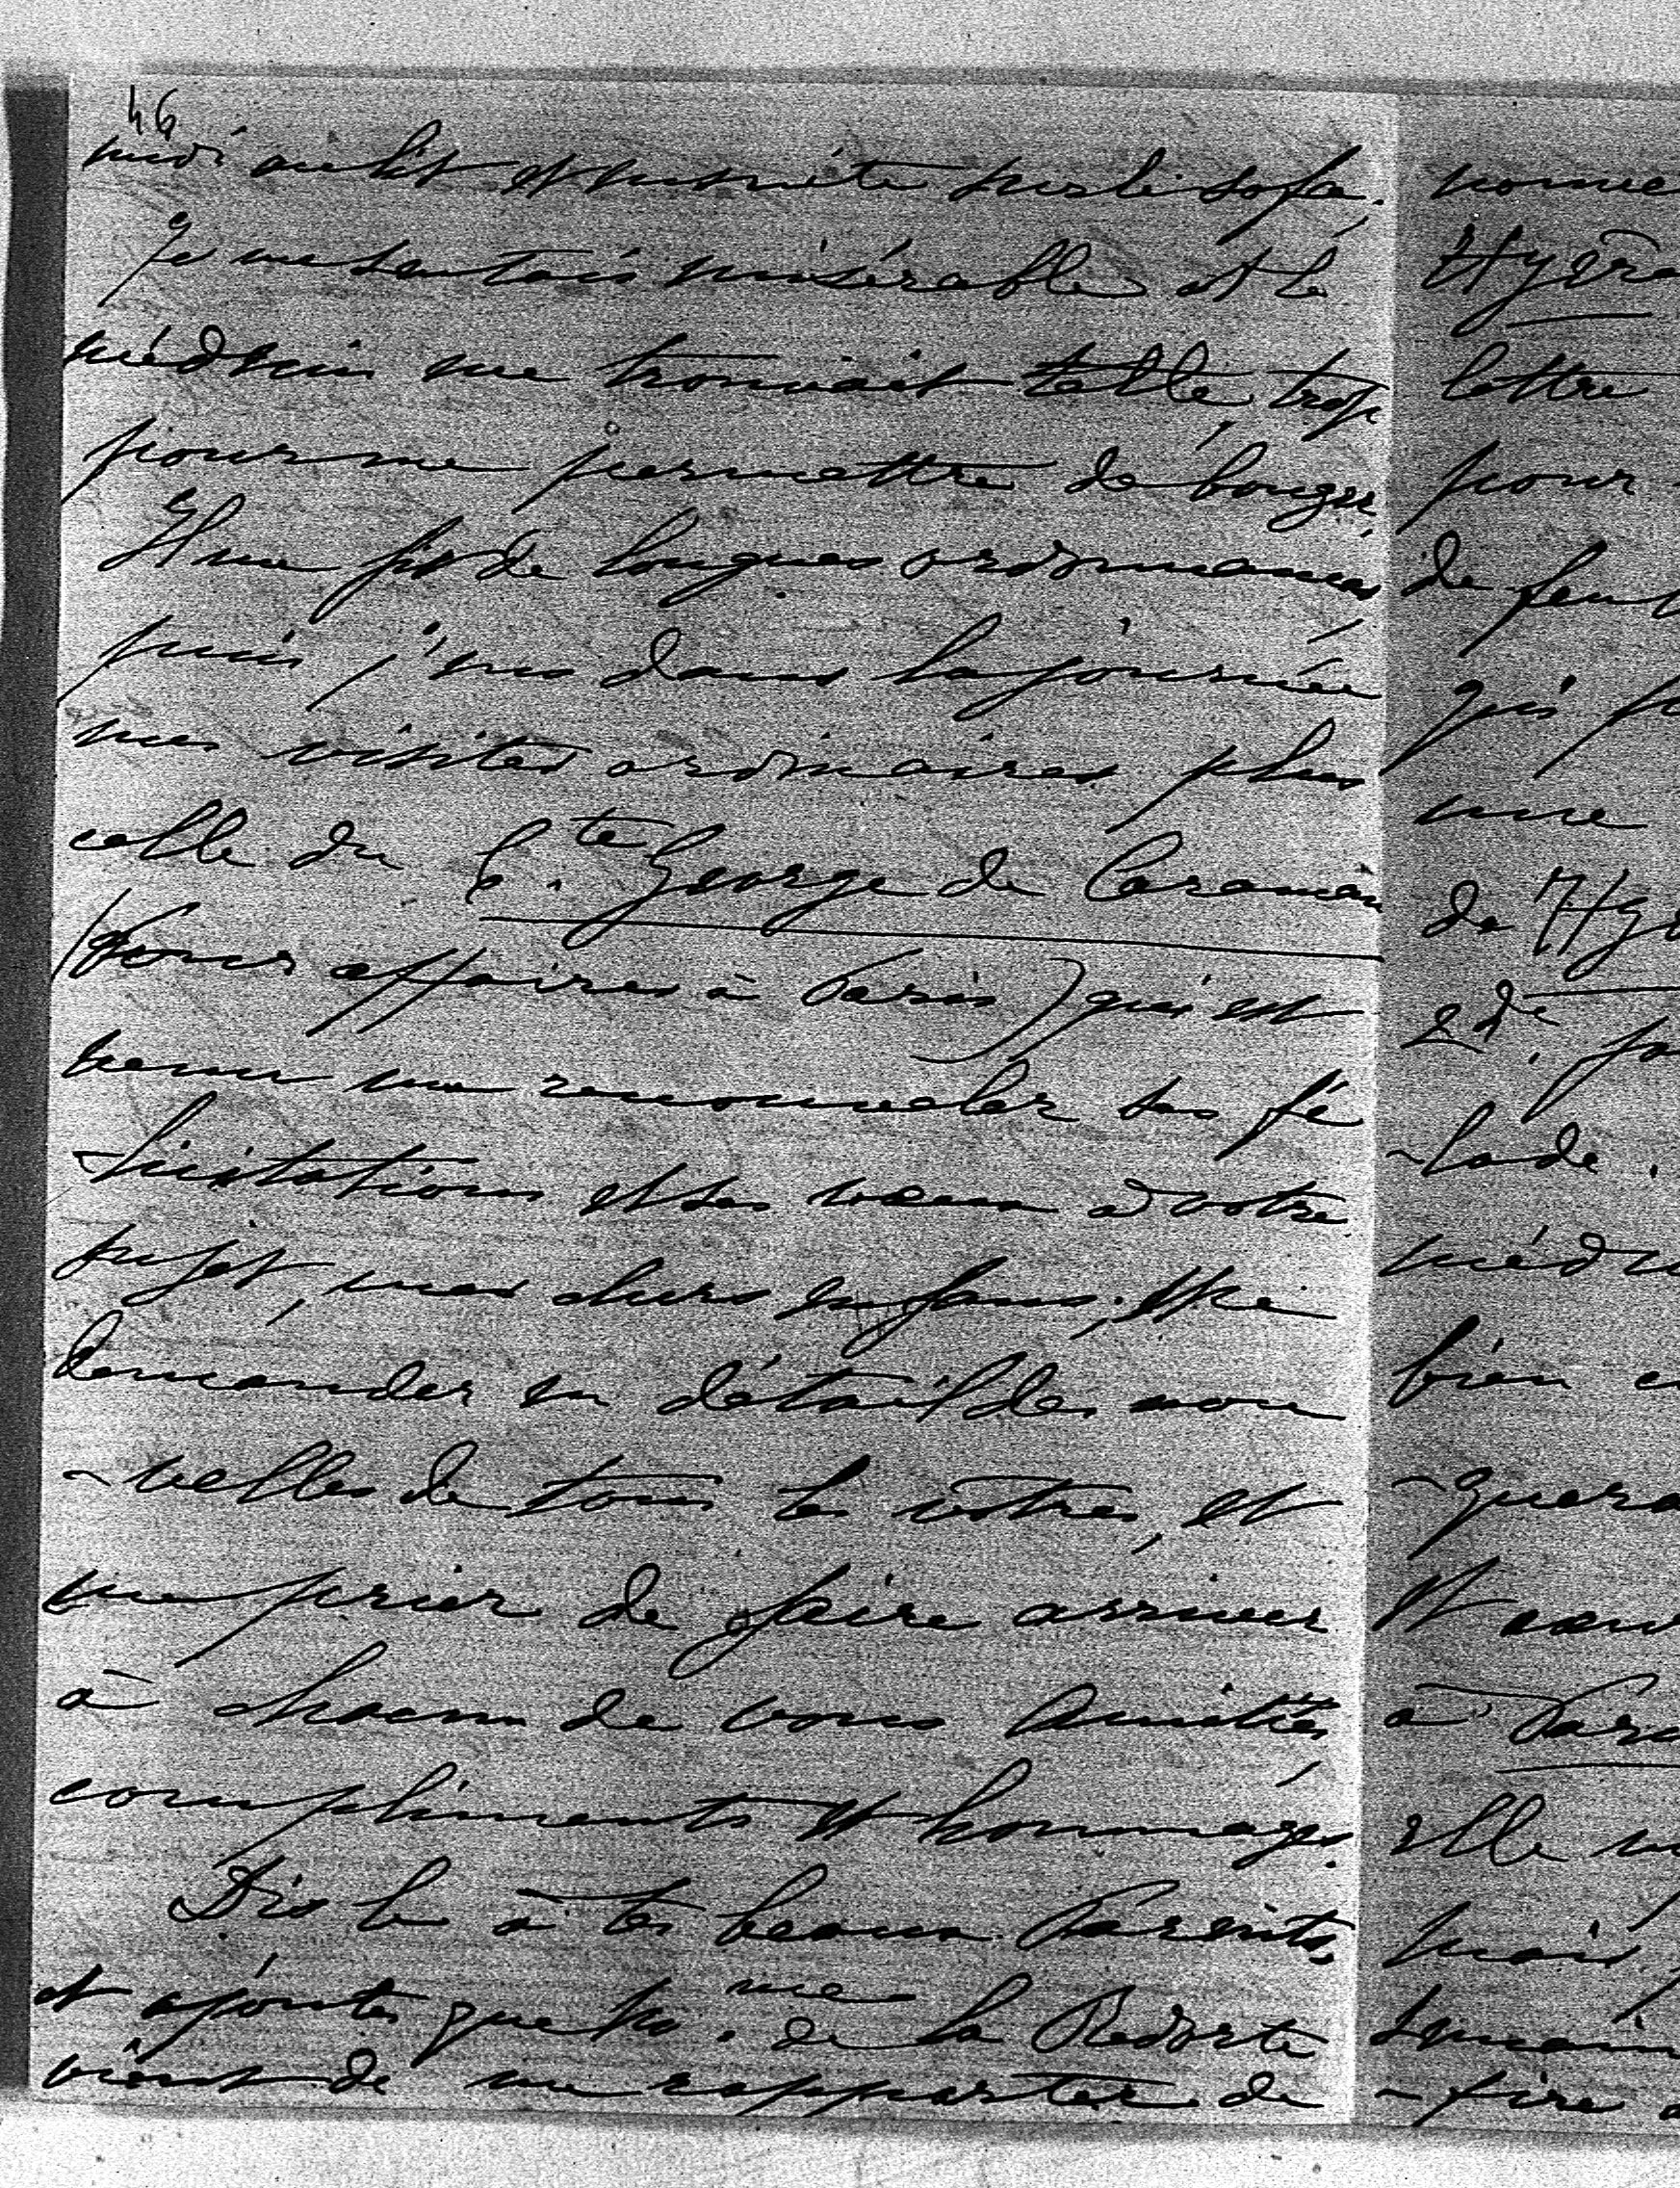 46
midi au lit et ensuite sur le sofa.
Je me sentais misérable et le
médecin me trouvait telle trop
pour me permettre de bouger.
Il me fit de longues ordonnances
puis j'eus dans la journée
mes visites ordinaires plus
celle du C.te George de Caraman
(pour affaires à Paris) qui est
venu me renouveler ses fé
-licitations et ses vœux à votre
sujet, mes chers enfans, et me
demander en détail des nou
-velles de tous les vôtres, et
me prier de faire arriver
à chacun de vous Amitiés
compliments et hommages.
Dis le à tes beaux Parents,
et ajoute que M.me de la Redorte
vient de me rapporter de
Hydra
lettre
pour
de
qui
une
de Hy
2de.
-lade.
bien
Et
à Par
elle
mais
-tire